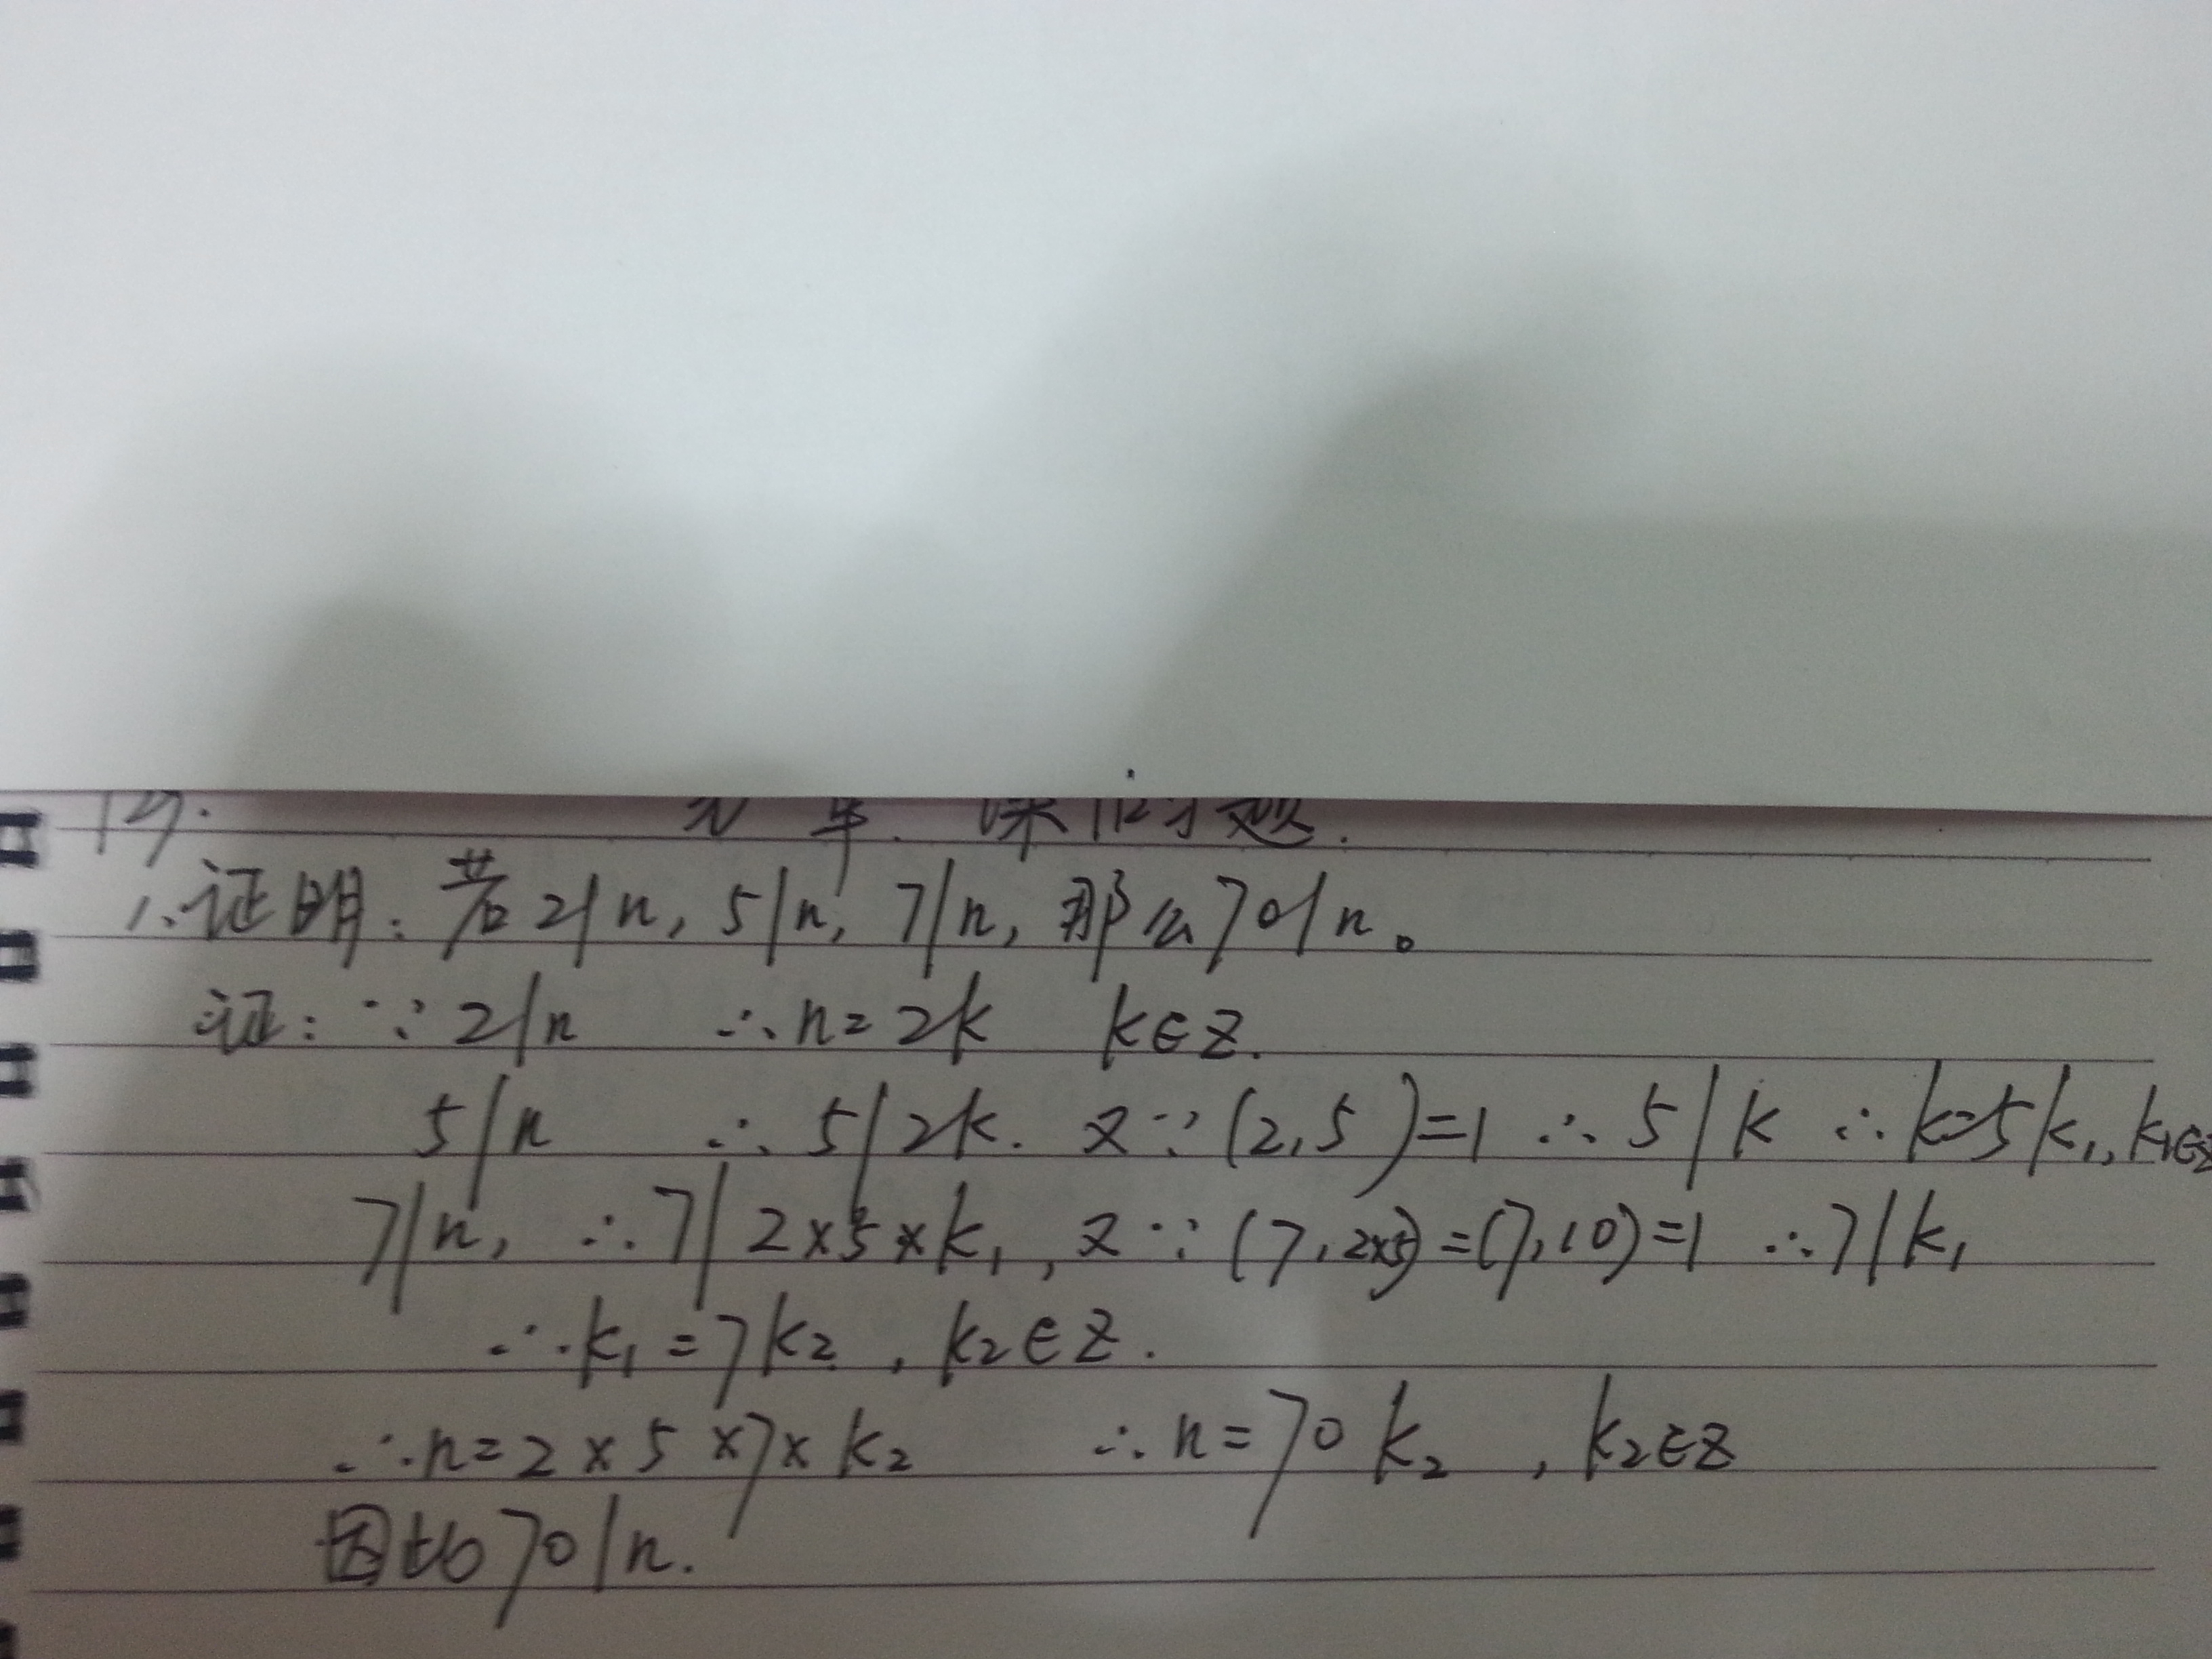 课后习题.
1.证明:若2|n, 5|n, 7|n, 那么70|n。
证: ∵ 2|n ∴n=2k k∈Z.
5|n ∴ 5|2k. 又∵(2,5)=1 ∴ 5|k ∴k=5k₁, k₁∈Z
7|n, ∴7|2×5×k₁, 又∵(7,2×5)=(7,10)=1 ∴7|k₁
∴k₁=7k₂, k₂∈Z.
∴n=2×5×7×k₂ ∴n=70k₂, k₂∈Z
因此70|n.